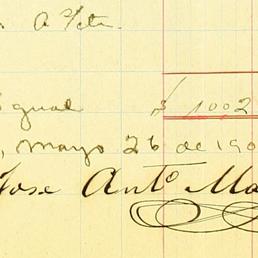 A
gual $ 1002
, Mayo 26 de 190
Jose Anto Ma